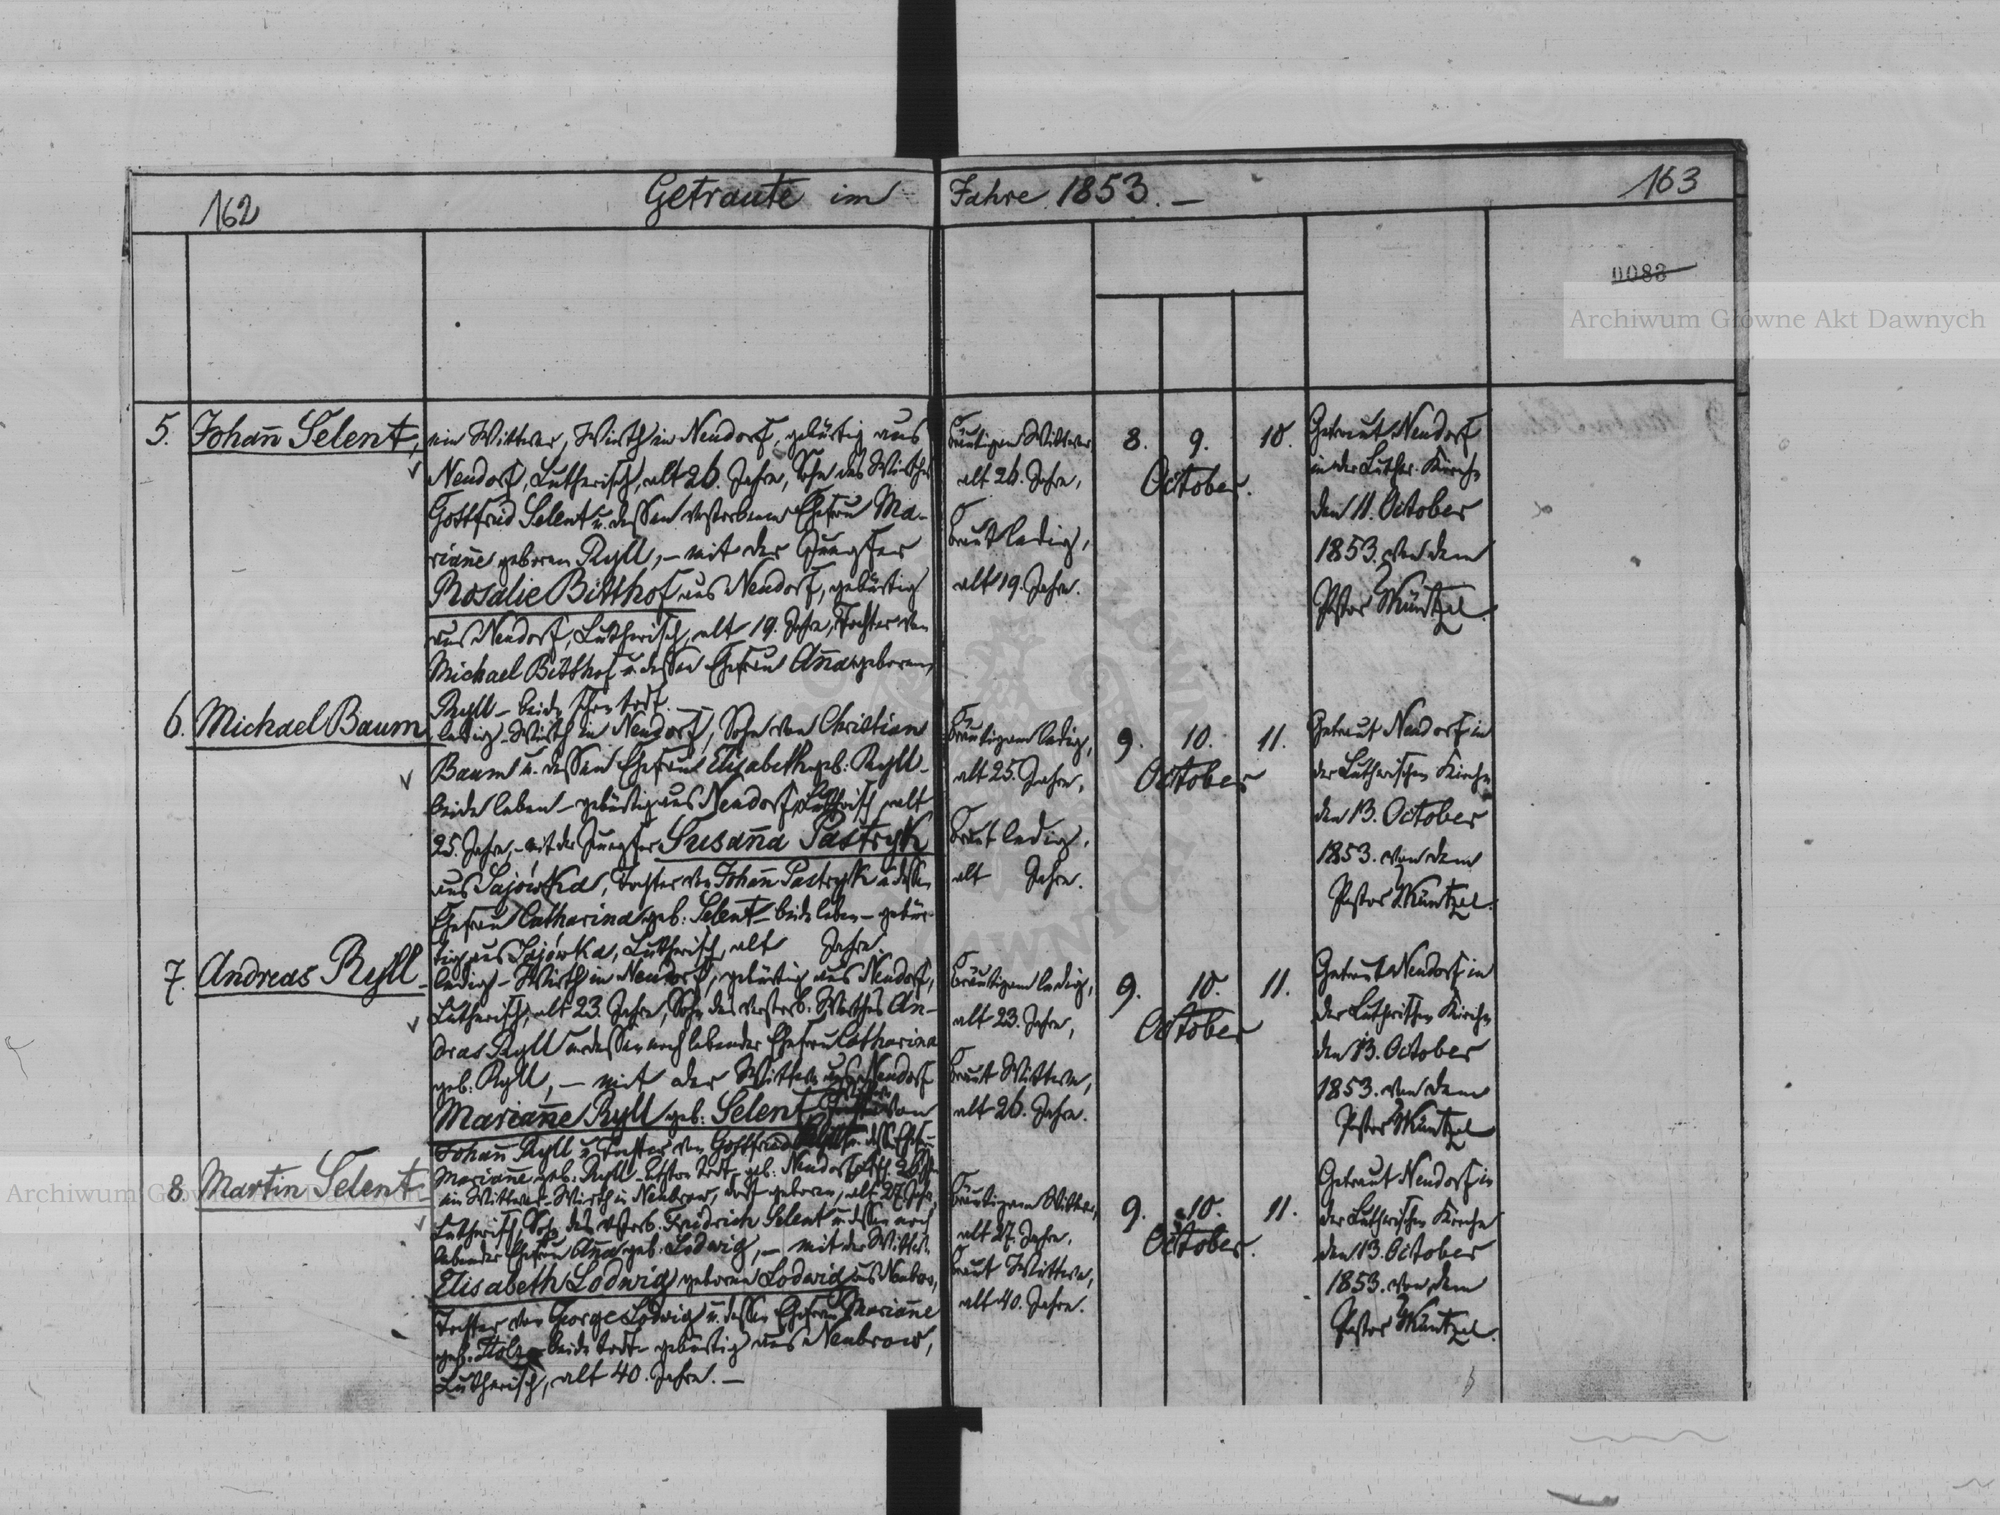 162
Getraute im Jahre 1853. —
163
0088
Archiwum Główne Akt Dawnych
5. Johañ Selent,
ein Wittwer, Wirth in Neudorf, gebürtig aus
Neudorf, Lutherisch, alt 26. Jahre, Sohn des Wirthes
Gottfried Selent u. dessen verstorbenen Ehefrau Ma-
riañe geboren Ryll, – mit der Jungfer
Rosalie Bitthof aus Neudorf, gebürtig
aus Neudorf, Lutherisch, alt 19. Jahre, Tochter von
Michael Bitthof u. dessen Ehefrau Aña geboren,
Ryll – beide schon todt. —
Bräutigam Wittwer,
alt 26. Jahre,
Braut ledig,
alt 19. Jahre.
8. 9. 10.
October.
Getraut Neudorf
in der Luther. Kirche
den 11. October
1853. von dem
Pastor Müntzel.
6. Michael Baum
ledig – Wirth in Neudorf, Sohn von Christian
Baum u. dessen Ehefrau Elisabeth geb: Ryll –
beide leben – gebürtig aus Neudorf, Lutherisch, alt
25. Jahre, – mit der Jungfer Susaña Pastryk
aus Sajówka, Tochter von Johañ Pastryk u. dessen
Ehefrau Catharina geb: Selent – beide leben – gebür-
tig aus Sajówka, Lutherisch, alt Jahre.
Bräutigam ledig,
alt 25. Jahre,
Braut ledig,
alt Jahre.
9. 10. 11.
October
Getraut Neudorf in
der Lutherischen Kirche
den 13. October
1853. von dem
Pastor Müntzel.
7. Andreas Ryll –
ledig – Wirth in Neudorf, gebürtig aus Neudorf,
Lutherisch, alt 23. Jahre, Sohn des verstorb. Wirthes An-
dras Ryll u. dessen noch lebender Ehefrau Catharina
geb. Ryll, – mit der Wittwe aus Neudorf
Mariañe Ryll geb: Selent von
Johañ Ryll u. Tochter von Gottfried u. dess. Ehefrau
Mariañe geb. Ryll – geb: Neudorf
Bräutigam ledig,
alt 23. Jahre,
Braut Wittwe,
alt 26. Jahre.
9. 10. 11.
October
Getraut Neudorf in
der Lutherischen Kirche
den 13. October
1853. von dem
Pastor Müntzel
8. Martin Selent –
ein Wittwer – Wirth in Neubrow, dort geboren, alt 27. Jahre
Lutherisch, Sohn des verstorb. Fridrich Selent u. dessen noch
lebender Ehefrau Aña geb. Lodwig, – mit der Wittwe
Elisabeth Lodwig geboren Lodwig aus Neubrow,
Tochter von George Lodwig u. dessen Ehefrau Mariañe
geb. – beide todt – gebürtig aus Neubrow,
Lutherisch, alt 40. Jahre. —
Bräutigam Wittwer,
alt 27. Jahre,
Braut Wittwe,
alt 40. Jahre.
9. 10. 11.
October.
Getraut Neudorf in
der Lutherischen Kirche
den 13. October
1853. von dem
Pastor Müntzel.
Archiwum Główne Akt Dawnych